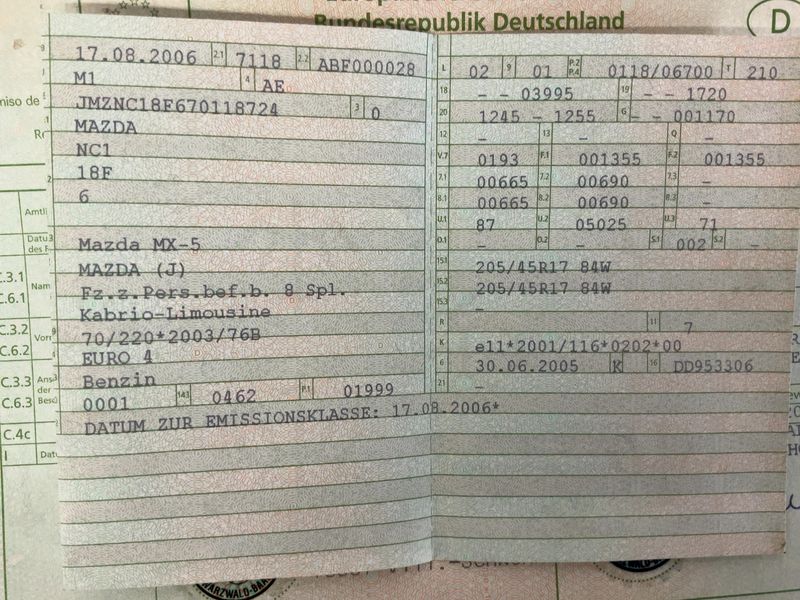 Bundesrepublik Deutschland
D
17.08.2006 2.1 7118 2.2 ABF000028
M1 4 AE
JMZNC18F670118724 3 0
MAZDA
NC1
18F
6
Mazda MX-5
MAZDA (J)
Fz.z.Pers.bef.b. 8 Spl.
Kabrio-Limousine
70/220*2003/76B
EURO 4
Benzin
0001 14.1 0462 P.1 01999
DATUM ZUR EMISSIONSKLASSE: 17.08.2006*
L 02 9 01 P.2 P.4 0118/06700 T 210
18 - - 03995 19 - - 1720
20 1245 - 1255 G - - 001170
12 - 13 - Q -
V.7 0193 F.1 001355 F.2 001355
7.1 00665 7.2 00690 7.3 -
8.1 00665 8.2 00690 8.3 -
U.1 87 U.2 05025 U.3 71
O.1 - O.2 - S.1 002 S.2 -
15.1 205/45R17 84W
15.2 205/45R17 84W
15.3 -
R 11 7
K e11*2001/116*0202*00
6 30.06.2005 17 K 16 DD953306
21 -
miso de
Amtli
C.3.1
C.6.1 Nam
C.3.2
C.6.2 Vorn
C.3.3
C.6.3
C.4c
I Datu
ARZWALD-BA